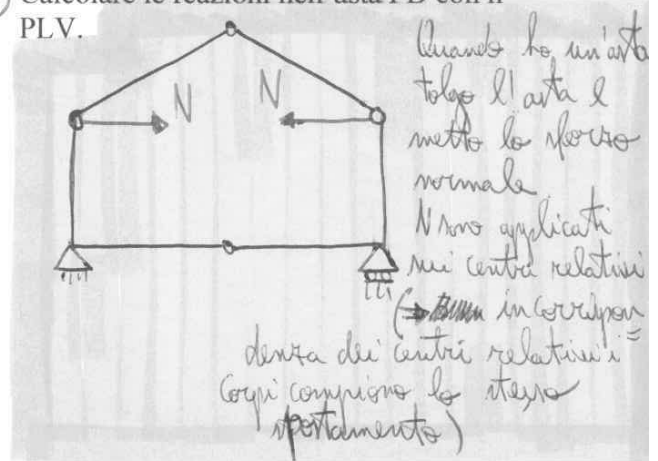 Calcolare le reazioni nell'asta FB con il
PLV.
N N
Quando ho un'asta
tolgo l'asta e
metto lo sforzo
normale
N sono applicati
nei centri relativi
(⇒ in corrispon=
denza dei centri relativi i
corpi compiono lo stesso
spostamento)